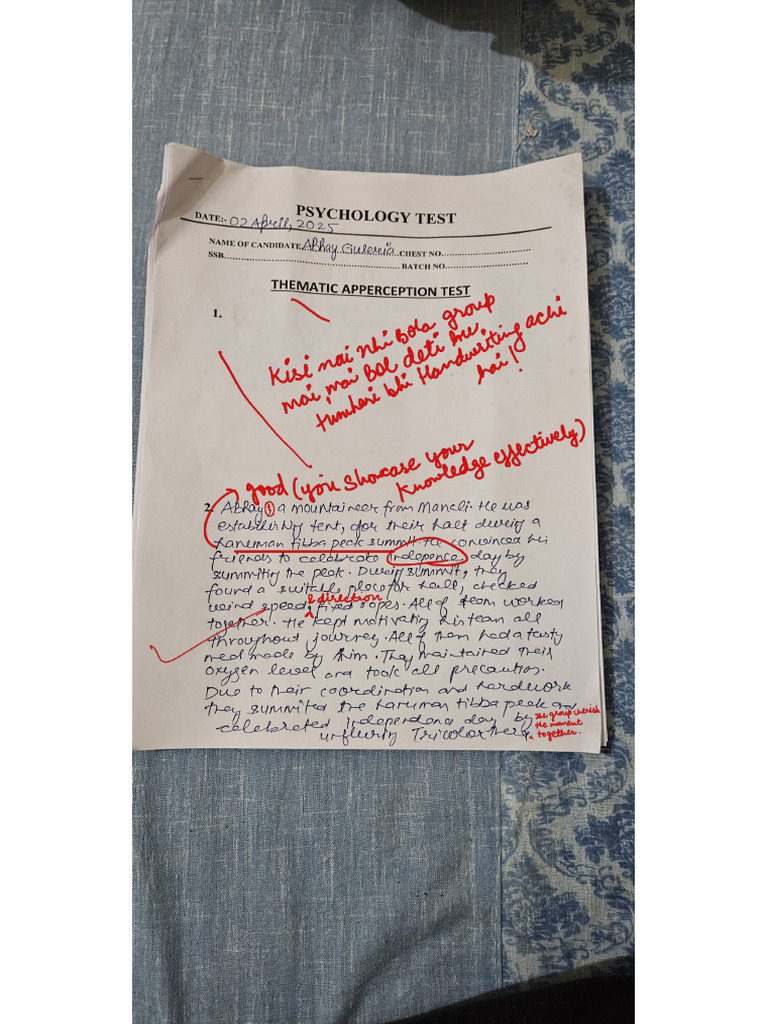 PSYCHOLOGY TEST
DATE:- 02 April, 2025
NAME OF CANDIDATE Abhay CHEST NO.
SSB BATCH NO.
THEMATIC APPERCEPTION TEST
1.
Kisi nai nhi Bola group
mai, mai Bol deti hu,
tumhari bhi Handwriting achi
hai!
good (you showcase your
knowledge effectively)
2. Abhay 1 a mountaineer from Manali. He was
establishing tent, for their halt during a
hanuman tibba peak summit. He convinced his
friends to celebrate indepence day by
summiting the peak. During summit, they
found a suitable place for halt, checked
& direction
wind speed, fixed ropes. All of team worked
together. He kept motivating his team all
throughout journey. All of them had a tasty
meal made by him. They maintained their
oxygen level and took all precaution.
Due to their coordination and hardwork
they summited the hanuman tibba peak and
celebrated independence day by
unfluring Tricolor there
The group cherish
the moment
together.